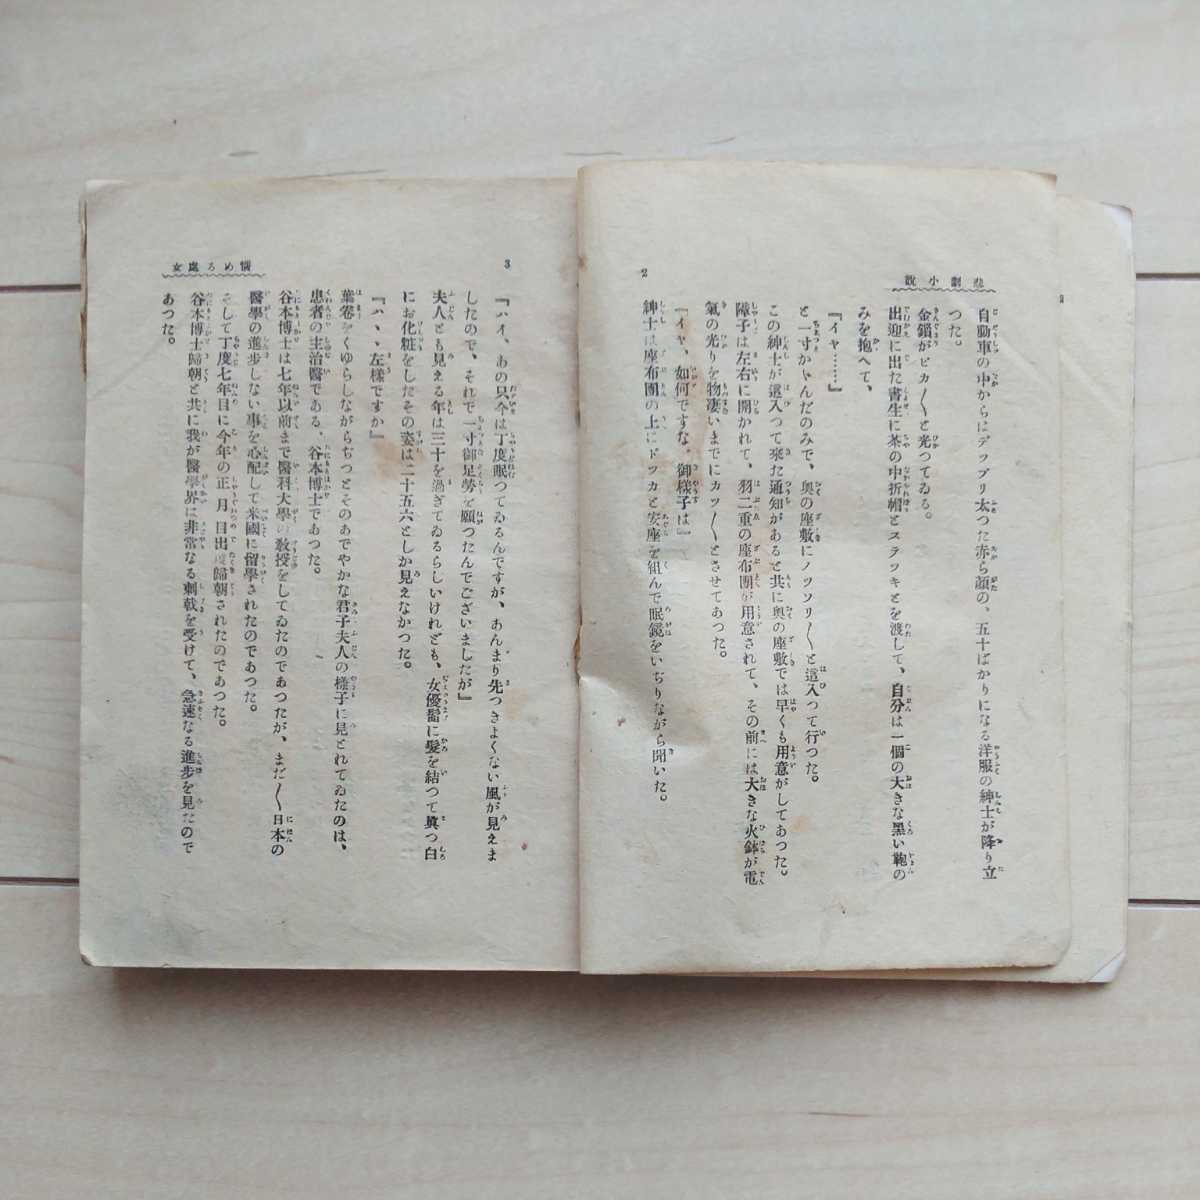 悲劇小説
2
自動車の中からはデツブリ太つた赤ら顔の、五十ばかりになる洋服の紳士が降り立
つた。
金鎖がピカ〳〵と光つてゐる。
出迎に出た書生に茶の中折帽とステツキとを渡して、自分は一個の大きな黒い鞄の
みを抱へて、
『イヤ……』
と一寸かゞんだのみで、奥の座敷にノツソリ〳〵と這入つて行つた。
この紳士が這入つて來た通知があると共に奥の座敷では早くも用意がしてあつた。
障子は左右に開かれて、羽二重の座布團が用意されて、その前には大きな火鉢が電
氣の光りを物凄いまでにカツ〳〵とさせてあつた。
『イヤ、如何ですな。御様子は』
紳士は座布團の上にドツカと安座を組んで眼鏡をいぢりながら聞いた。
3
惱める處女
『ハイ、あの只今は丁度眠つてゐるんですが、あんまり先つきよくない風が見えま
したので、それで一寸御足勞を願つたんでございましたが』
夫人とも見える年は三十を過ぎてゐるらしいけれども、女優髷に髮を結つて眞つ白
にお化粧をしたその姿は二十五六としか見えなかつた。
『ハヽヽ左様ですか』
葉卷をくゆらしながらぢつとそのあでやかな君子夫人の様子に見とれてゐたのは、
患者の主治醫である、谷本博士であつた。
谷本博士は七年以前まで醫科大學の教授をしてゐたのであつたが、まだ〳〵日本の
醫學の進歩しない事を心配して米國に留學されたのであつた。
そして丁度七年目に今年の正月目出度歸朝されたのであつた。
谷本博士歸朝と共に我が醫學界に非常なる刺戟を受けて、急速なる進歩を見たので
あつた。